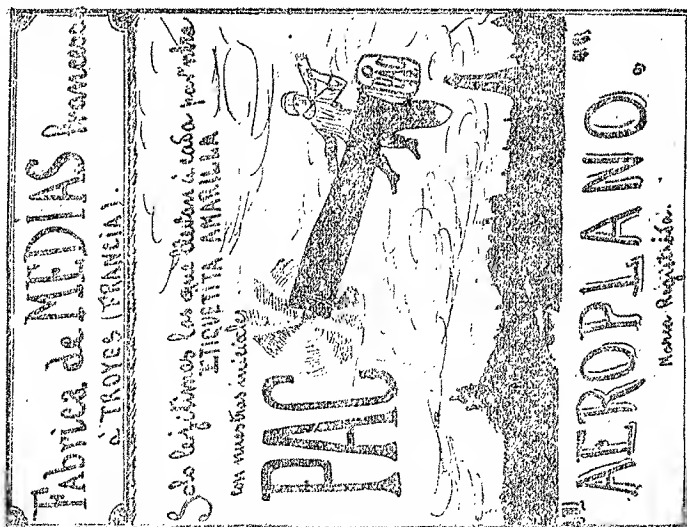 Fabrica de MEDIAS francesas
à TROYES (FRANCIA).
Solo legitimas las que llevan à cada par nĺtra
ETIQUETITA AMARILLA
con nuestras iniciales
PAC
PAC
"AEROPLANO."
Marca Registrada.